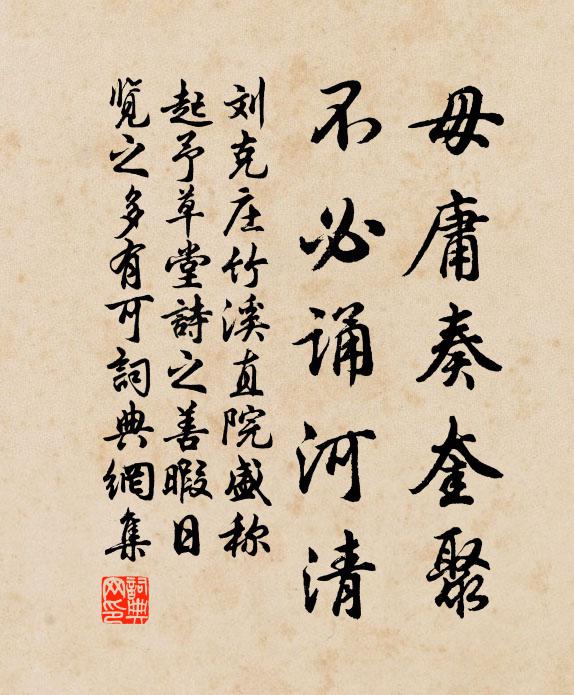 毋庸奏奎聚
不必诵河清
刘克庄竹溪直院盛称
起予草堂詩之善暇日
览之多有可詞典網集
詞典
网印